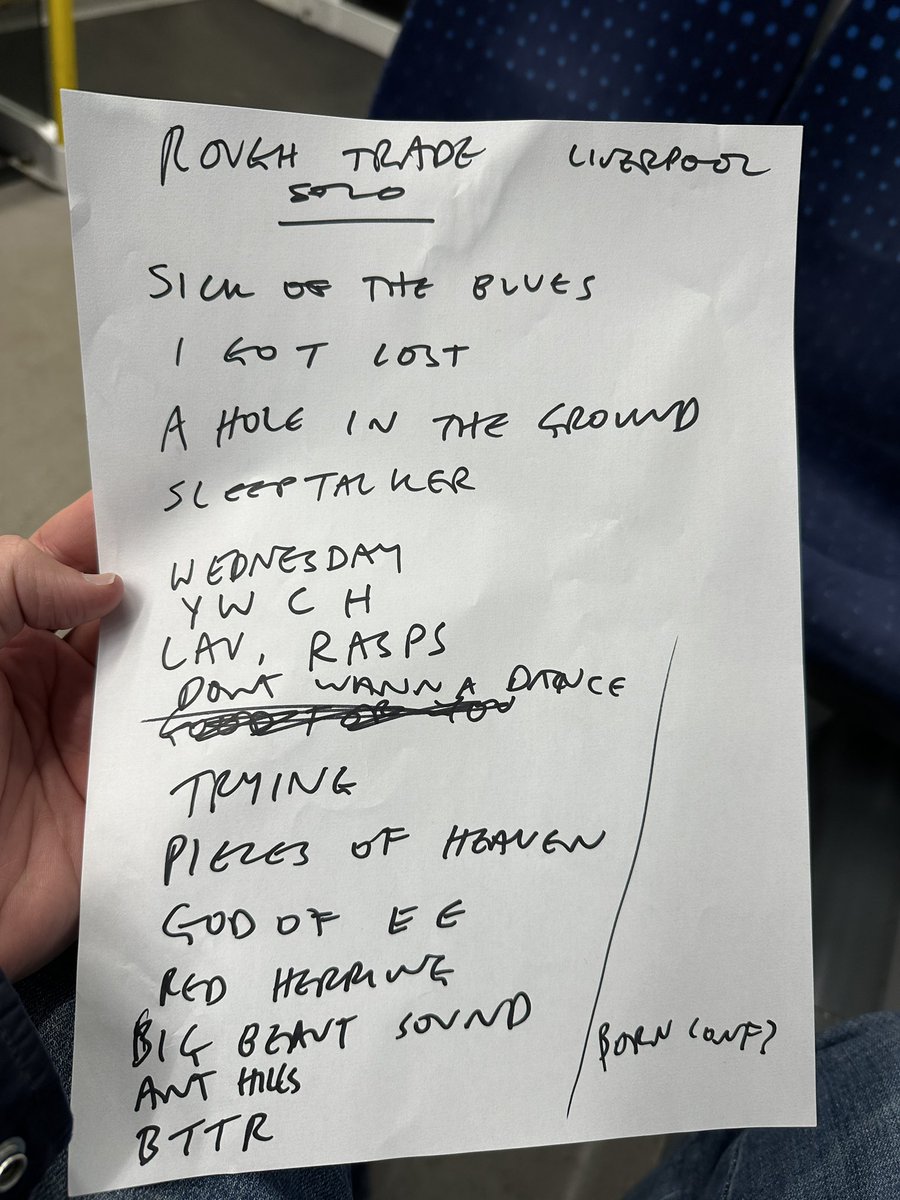 ROUGH TRADE LIVERPOOL
SOLO
SICK OF THE BLUES
I GOT LOST
A HOLE IN THE GROUND
SLEEPTALKER
WEDNESDAY
YW C H
LAV, RASPS
DONT WANNA DANCE
GOOD FOR YOU
TRYING
PIECES OF HEAVEN
GOD OF E E
RED HERRING
BIG BEAUT SOUND
ANT HILLS
BTTR
BORN CONF?